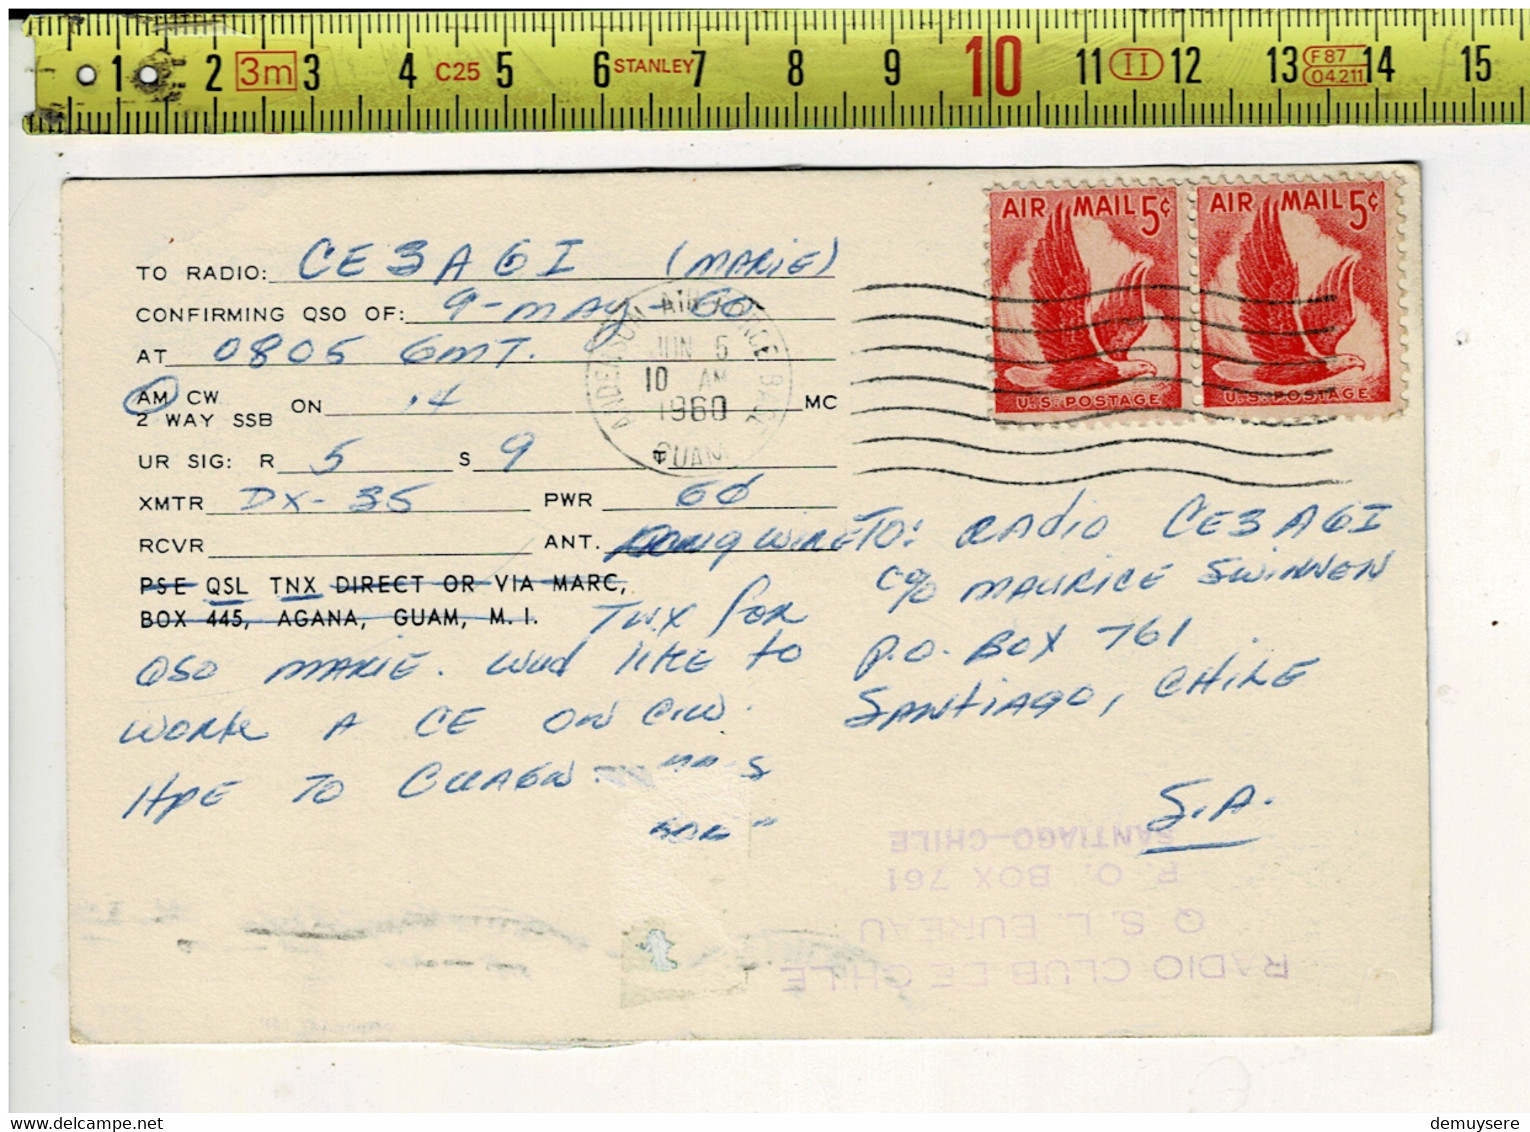 1 2 3m 3 4 C25 5 6 STANLEY 7 8 9 10 11 II 12 13 F87 04.211 14 15
AIR MAIL 5¢
U.S. POSTAGE
AIR MAIL 5¢
U.S. POSTAGE
TO RADIO: CE3AGI (MARIE)
CONFIRMING QSO OF: 9-MAY-60
AT 0805 GMT.
AM CW
2 WAY SSB ON 14 MC
UR SIG: R 5 S 9 T
XMTR DX-35 PWR 60
RCVR ANT. Long wire
PSE QSL TNX DIRECT OR VIA MARC,
BOX 445, AGANA, GUAM, M. I.
TNX for
QSO MARIE. wud like to
work A CE ON C.W.
HPE TO CUAGN.
ANDERSON AIR FORCE BASE
JUN 5
10 AM
1960
GUAM
TO: RADIO CE3AGI
c/o MAURICE SWINNEN
P.O. BOX 761
SANTIAGO, CHILE
S.A.
RADIO CLUB DE CHILE
Q S. L. BUREAU
P. O. BOX 761
SANTIAGO-CHILE
demuysere